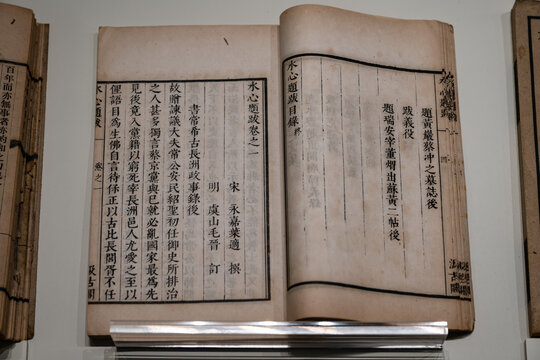 題黃巖蔡冲之墓誌後
跋義役
題瑞安宰董煟出蘇黃二帖後
水心題跋目錄 終
水心題跋卷之一
宋 永嘉葉適 撰
明 虞山毛晉 訂
書常希古長洲政事錄後
故贈諫議大夫常公安民紹聖初任御史所排治
之人甚多獨言蔡京黨與已就必亂國家最為先
見後竟入黨籍以窮死宰長洲邑人尤愛之至以
俚語目為生佛自言待保正以古比長閭胥不任
水心題跋 卷之一
汲古閣
百年而亦無事者亦